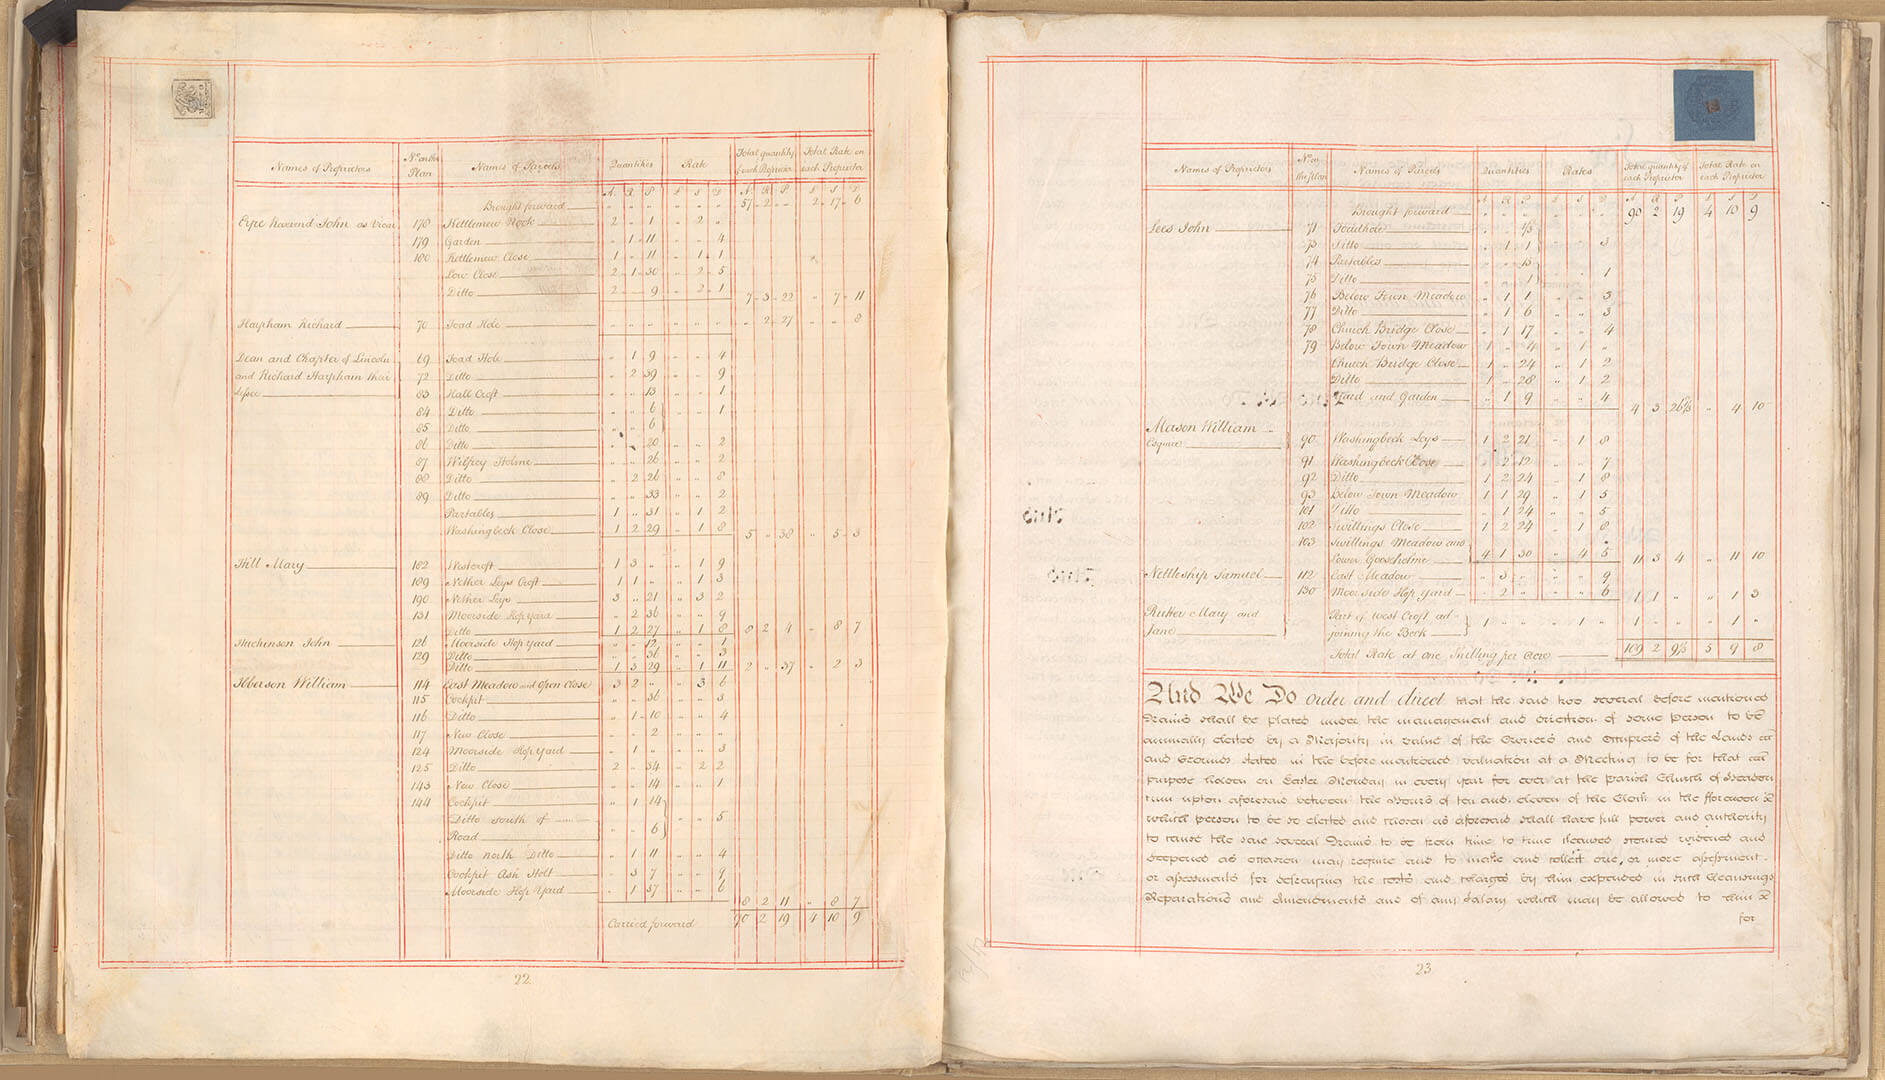 Names of Proprietors | No. on the Plan | Names of Parcels | Quantities | Rate | Total quantity of each Proprietor | Total Rate on each Proprietor
A R P | £ S D | A R P | £ S D
Brought forward 57 " 2 " " 2 " 17 " 6
Eyre Reverend John as Vicar 178 Kettlemew Nook 2 " 1 " 2 "
179 Garden " 1 11 " " 4
180 Kettlemew Close 1 " 11 " 1 1
Low Close 2 1 30 " 2 5
Ditto 2 " 9 " 2 1 7 3 22 " 7 11
Haypham Richard 70 Toad Hole " " " " " " " 2 27 " " 8
Dean and Chapter of Lincoln 69 Toad Hole " 1 9 " " 4
and Richard Haypham their 72 Ditto " 2 39 " " 9
Lessee 83 Hall Croft " " 13 " " 1
84 Ditto " " 6 " " 1
85 Ditto " " 6
86 Ditto " " 20 " " 2
87 Wilfrey Holme " " 26 " " 2
88 Ditto " 2 26 " " 8
89 Ditto " " 33 " " 2
Partables 1 " 31 " 1 2
Washingbeck Close 1 2 29 " 1 8 5 " 38 " 5 3
Hill Mary 182 Westcroft 1 3 " " 1 9
189 Nether Leys Croft 1 1 " " 1 3
190 Nether Leys 3 " 21 " 3 2
131 Moorside Hop Yard " 2 36 " " 9
Ditto 1 2 27 " 1 8 8 2 4 " 8 7
Hutchinson John 126 Moorside Hop Yard " " 12 " " 1
129 Ditto " " 36 " " 3
Ditto 1 3 29 " 1 11 2 " 37 " 2 3
Iberson William 114 East Meadow and Open Close 3 2 " " 3 6
115 Cockpit " " 36 " " 3
116 Ditto " 1 10 " " 4
117 New Close " " 2 " " "
124 Moorside Hop Yard " 1 " " " 3
125 Ditto 2 " 34 " 2 2
143 New Close " " 14 " " 1
144 Cockpit " 1 14
Ditto South of " " 5
Road " " 6
Ditto North Ditto " 1 11 " " 4
Cockpit Ash Holt " 3 7 " " 9
Moorside Hop Yard " 1 37 " " 6
8 2 11 " 8 7
Carried forward 90 2 19 4 10 9
22
Names of Proprietors | No. on the Plan | Names of Parcels | Quantities | Rates | Total quantity of each Proprietor | Total Rate on each Proprietor
A R P | £ S D | A R P | £ S D
Brought forward 90 2 19 4 10 9
Lees John 71 Toadhole
73 Ditto " 1 1 " " 3
74 Partables " " 13
75 Ditto " " 1 " " 1
76 Below Town Meadow " 1 1 " " 3
77 Ditto " 1 6 " " 3
78 Church Bridge Close " 1 17 " " 4
79 Below Town Meadow 1 " 4 " 1 "
Church Bridge Close 1 " 24 " 1 2
Ditto 1 " 28 " 1 2
Yard and Garden " 1 9 " " 4 4 3 26⅔ " 4 10
Mason William
Esquire 90 Washingbeck Leys 1 2 21 " 1 8
91 Washingbeck Close " 2 12 " " 7
92 Ditto 1 2 24 " 1 8
93 Below Town Meadow 1 1 29 " 1 5
101 Ditto " 1 24 " " 5
102 Twillings Close 1 2 24 " 1 8
103 Twillings Meadow and
Lower Gooseholme 4 1 30 " 4 5 11 3 4 " 11 10
Nettleship Samuel 112 East Meadow " 3 " " " 9
130 Moorside Hop Yard " 2 " " " 6 1 1 " " 1 3
Rutter Mary and Part of West Croft ad
Jane joining the Beck 1 " " " 1 " 1 " " " 1 "
Total Rate at one Shilling per Acre 109 2 9⅔ 5 9 8
And We Do order and direct that the said two several before mentioned
Drains shall be placed under the management and direction of some Person to be
annually elected by a Majority in value of the Owners and Occupiers of the Lands
and Grounds stated in the before mentioned valuation at a Meeting to be for that
purpose holden on Easter Monday in every year for ever at the Parish Church of
upon aforesaid between the Hours of ten and eleven of the Clock in the fforenoon
which person to be so elected and chosen as aforesaid shall have full power and authority
to cause the said several Drains to be from time to time cleansed scoured widened and
deepened as occasion may require and to make and collect one, or more assessment
or assessments for defraying the costs and charges by him expended in such Cleansings
Reparations and Amendments and of any Salary which may be allowed to him
for
23